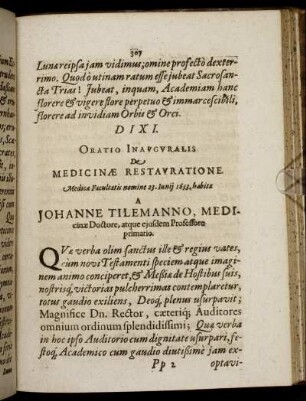 307
Lunæ reipsa jam vidimus; omine profectò dexter-
rimo. Quod ò utinam ratum esse jubeat Sacrosan-
cta Trias! Jubeat, inquam, Academiam hanc
florere & vigere flore perpetuo & immarcescibili,
florere ad invidiam Orbis & Orci.
DIXI.
ORATIO INAVGVRALIS
DE
MEDICINÆ RESTAVRATIONE.
Medicæ Facultatis nomine 23. Iunij 1653. habita
A
JOHANNE TILEMANNO, MEDI-
cinæ Doctore, atque ejusdem Professore
primario.
QVæ verba olim sanctus ille & regius vates,
cùm novi Testamenti speciem atque imagi-
nem animo conciperet, & Messiæ de Hostibus suis,
nostrisq; victorias pulcherrimas contemplaretur,
totus gaudio exiliens, Deoq; plenus usurpavit;
Magnifice Dn. Rector, cæteriq; Auditores
omnium ordinum splendidissimi; Quæ verba
in hoc ipso Auditorio cum dignitate usurpari, fe-
stoq; Academico cum gaudio diutissimè jam ex-
Pp 2 optavi-